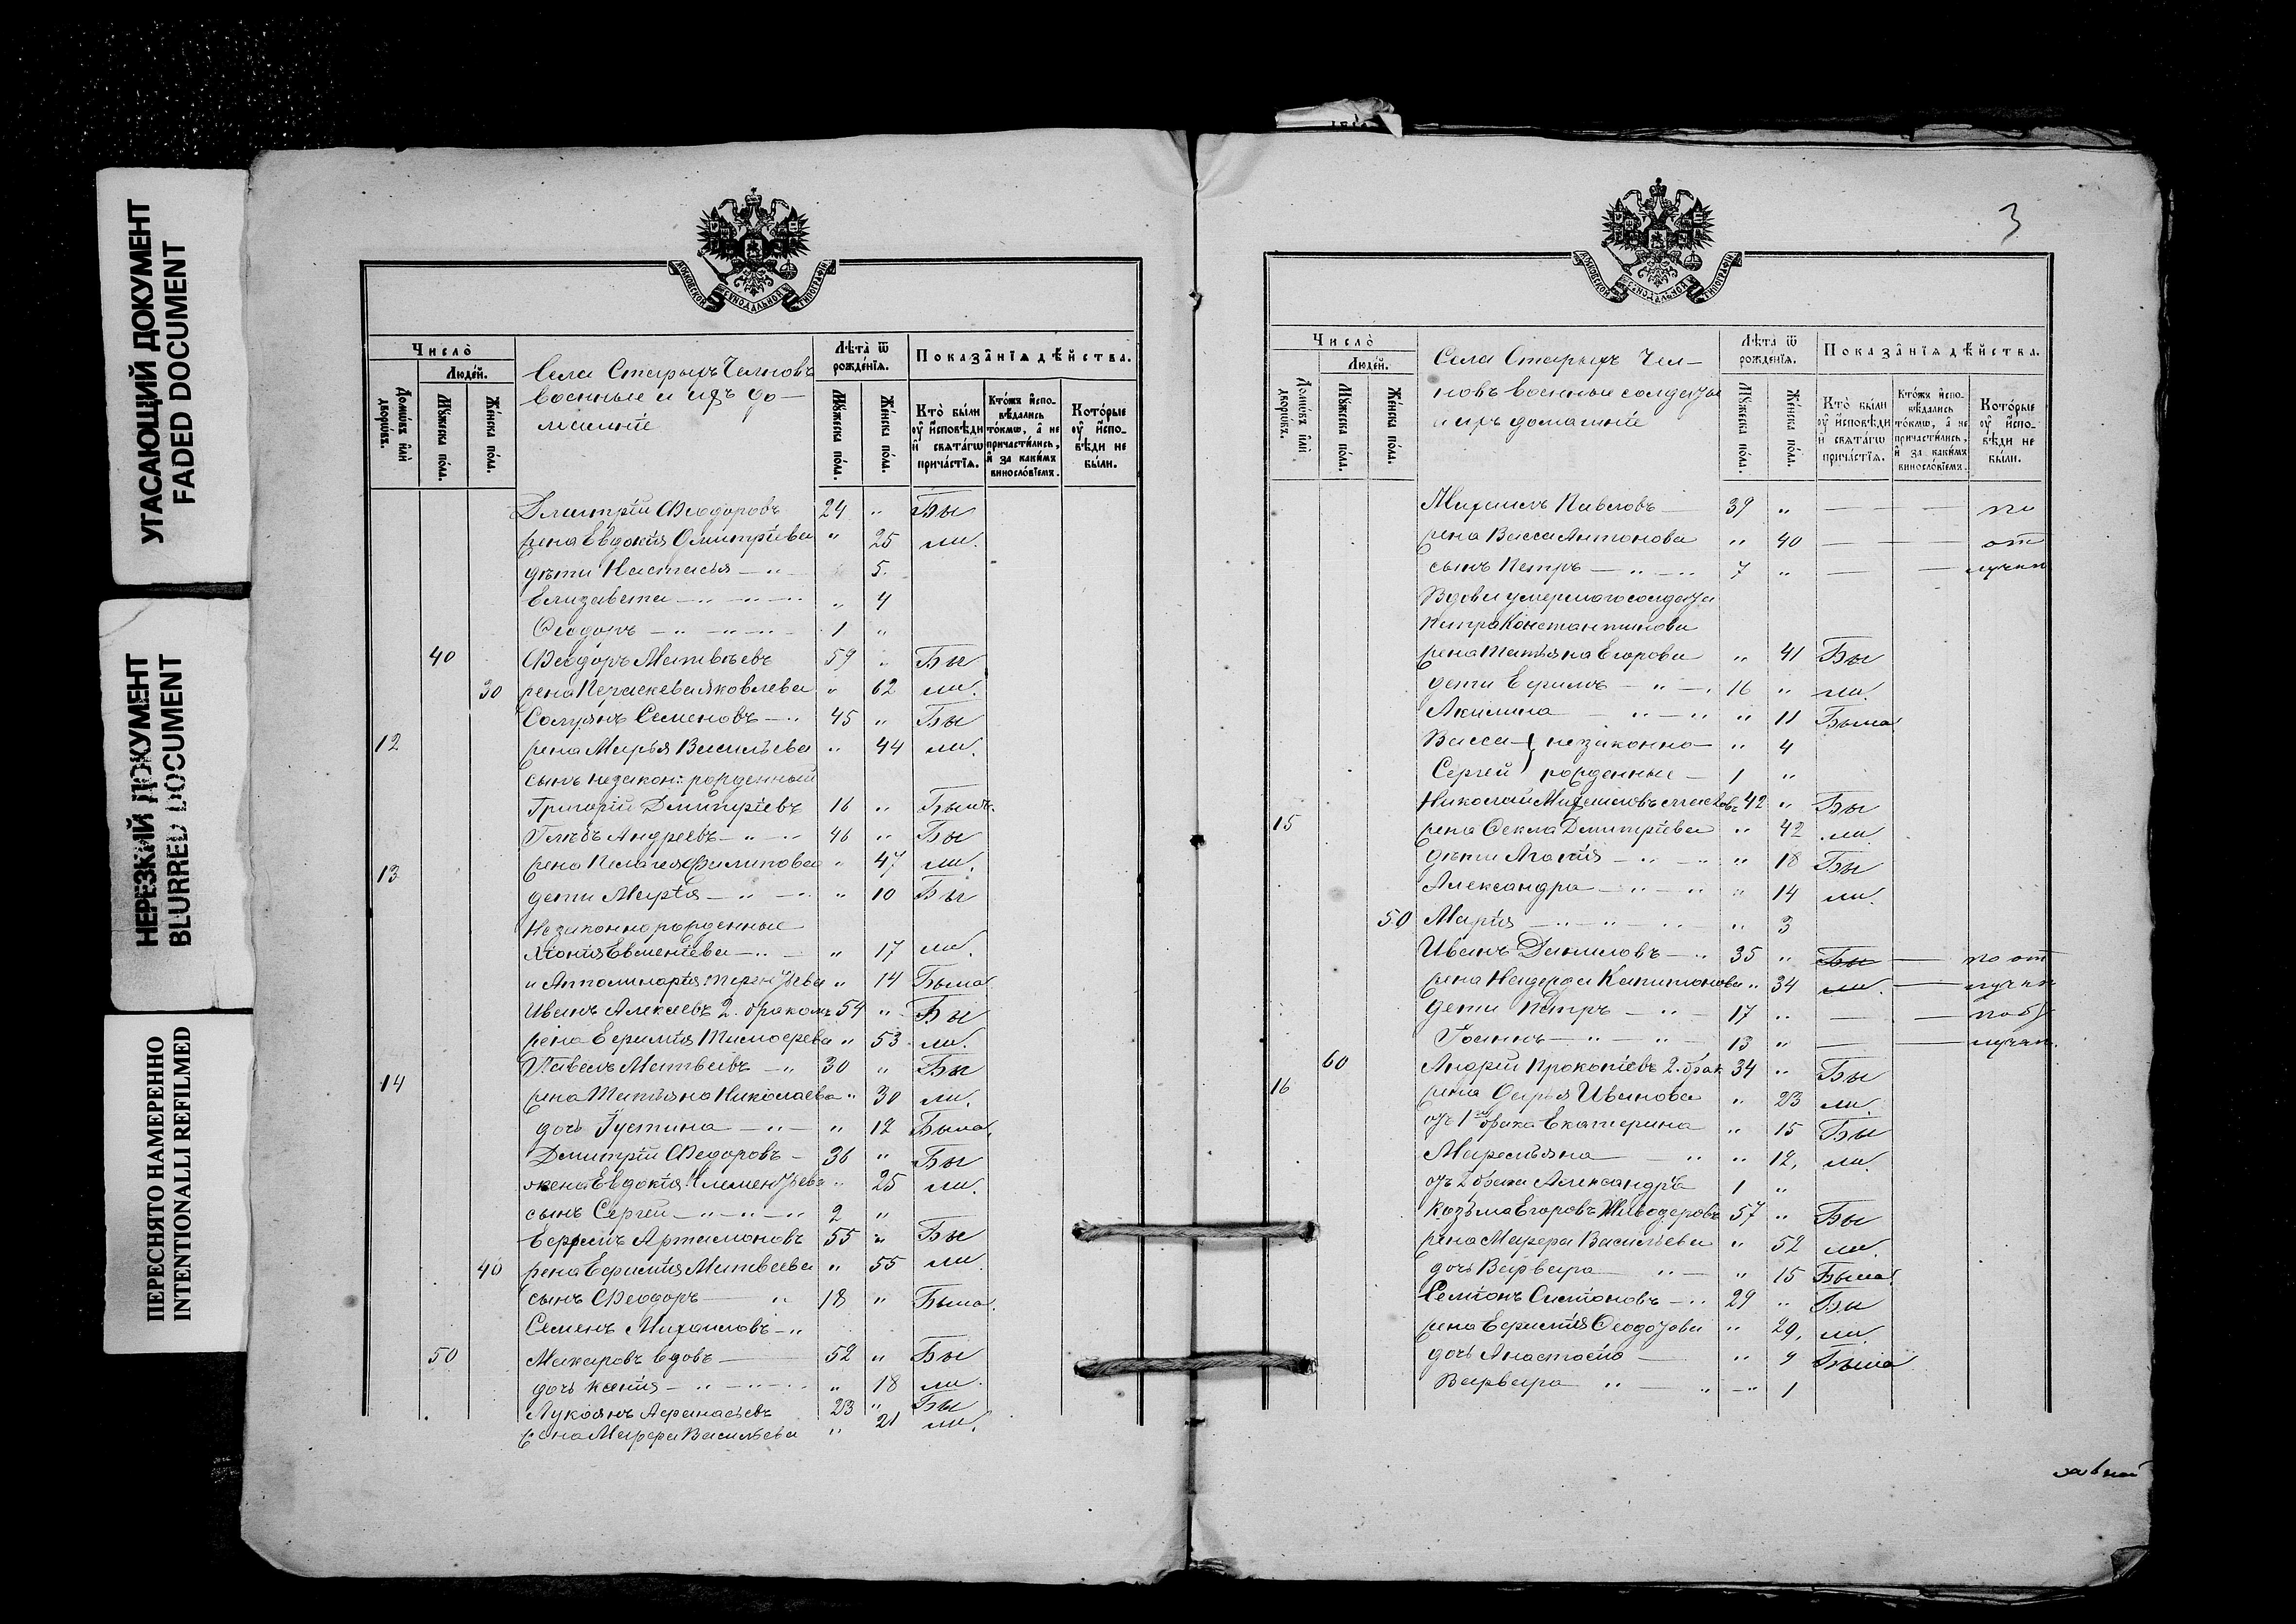 УГАСАЮЩИЙ ДОКУМЕНТ
FADED DOCUMENT
НЕРЕЗКИЙ ДОКУМЕНТ
BLURRED DOCUMENT
ПЕРЕСНЯТО НАМЕРЕННО
INTENTIONALLI REFILMED
МОСКОВСКОЙ СѴНОДАЛЬНОЙ ТИПОГРАФІИ
Число̀
Людей.
Домѡвъ и҆лѝ дворѡвъ.
Мꙋжеска по́ла.
Же́нска по́ла.
Села Старыхъ Челновъ
военные и ихъ до-
машніе
Лѣта̀ ѿ рожде́нїѧ.
Мꙋжеска по́ла.
Же́нска по́ла.
Показа̑нїѧ дѣ́йства.
Кто̀ бы́ли ᲂу҆ и҆сповѣ́ди и҆ свѧта́гѡ прича́стїѧ.
Кто́жъ и҆спо-вѣ́дались то́кмѡ, а҆ не причасти́лись, и҆ за каки́мъ винословїемъ.
Кото́рые ᲂу҆ и҆спо-вѣ́ди не бы́ли.
Дмитрій Ѳеодоровъ 24 „ Бы
жена Евдокія Дмитріева „ 25 ли.
дѣти Настасья — „ — 5.
Елизавета — „ — „ — „ 4
Ѳеодоръ — „ — „ — 1 „
40 Ѳеодоръ Матвѣевъ 59 „ Бы
30 жена Параскева Яковлева „ 62 ли.
Семеновъ — „ 45 „ Бы
12 жена Марья Васильева „ 44 ли.
сынъ незакон: рожденный
Григорій Дмитріевъ 16 „ Былъ.
Глѣбъ Андреевъ — „ — 46 „ Бы
13 жена Пелагея Филипова „ 47 ли.
дети Марія — „ — „ 10 Бы
Незаконнорожденные
Хіонія Евменіева — „ „ 17 ли.
и Апполинарія Терентьева „ 14 Была
Иванъ Алексѣевъ 2. бракомъ 54 „ Бы
жена Евфимія Тимофеева „ 53 ли.
Павелъ Матвеевъ — „ 30 „ Бы
14 жена Татьяна Николаева „ 30 ли.
дочь Іустина — „ — „ 12 Была.
Дмитрій Ѳедоровъ — 36 „ Бы
жена Евдокія Клементьева „ 25 ли.
сынъ Сергей — „ — „ — „ 2 „
Ефимъ Артамоновъ 55 „ Бы
40 жена Евфимія Матвеева „ 55 ли
сынъ Ѳеодоръ — „ 18 „ Была.
Семенъ Михаиловъ — „
50 Макаровъ вдовъ — 52 „ Бы
дочь Ксенія — „ — „ — „ 18 ли.
Лукоянъ Афанасьевъ 23 „ Бы
жена Марфа Васильева „ 21 ли.
3
МОСКОВСКОЙ СѴНОДАЛЬНОЙ ТИПОГРАФІИ
Число̀
Людей.
Домѡвъ и҆лѝ дворѡвъ.
Мꙋжеска по́ла.
Же́нска по́ла.
Села Старыхъ Чел-
новъ военные солдаты
и ихъ домашніе
Лѣта̀ ѿ рожде́нїѧ.
Мꙋжеска по́ла.
Же́нска по́ла.
Показа̑нїѧ дѣ́йства.
Кто̀ бы́ли ᲂу҆ и҆сповѣ́ди и҆ свѧта́гѡ прича́стїѧ.
Кто́жъ и҆спо-вѣ́дались то́кмѡ, а҆ не причасти́лись, и҆ за каки́мъ винословїемъ.
Кото́рые ᲂу҆ и҆спо-вѣ́ди не бы́ли.
Михаилъ Павловъ — 39 „ — — — по
жена Васса Антонова „ 40 — — — от
сынъ Петръ — „ — „ 7 „ — — лучкѣ
Вдова умершаго солдата
Петра Константинова
жена Татьяна Егорова „ 41 Бы
дети Ефимъ — „ — 16 „ ли.
Акилина — „ — „ „ 11 Была
Васса } незаконно — „ 4
Сергей } рожденные — 1 „
Николай Михаиловъ 42 „ Бы
15 жена Ѳекла Дмитріева „ 42 ли
дѣти Агапія — „ — „ „ 18 Бы
Александра — „ — „ „ 14 ли.
50 Марія — „ — „ — „ „ 3
Иванъ Даниловъ — „ 35 „ Бы — по от
жена Надежда Капитонова „ 34 ли. — лучкѣ
Дети Петръ — „ — 17 „ — — по от
Іоаннъ — „ — „ — 13 „ — — лучкѣ.
60 Андрей Прокопіевъ 2. брак 34 „ Бы
16 жена Дарья Иванова „ 23 ли.
отъ 1го брака Екатерина „ 15 Бы
Маремьяна — „ „ 12, ли.
отъ 2 брака Александръ 1 „
Козьма Егоровъ Живодеровъ 57 „ Бы
жена Марфа Васильева „ 52 ли.
дочь Варвара — „ — „ 15 Была.
Семіонъ Симіоновъ — „ 29 „ Бы
жена Евфимія Ѳедотова „ 29, ли.
дочь Анастасія — „ 9 Была
Варвара „ — „ — „ 1